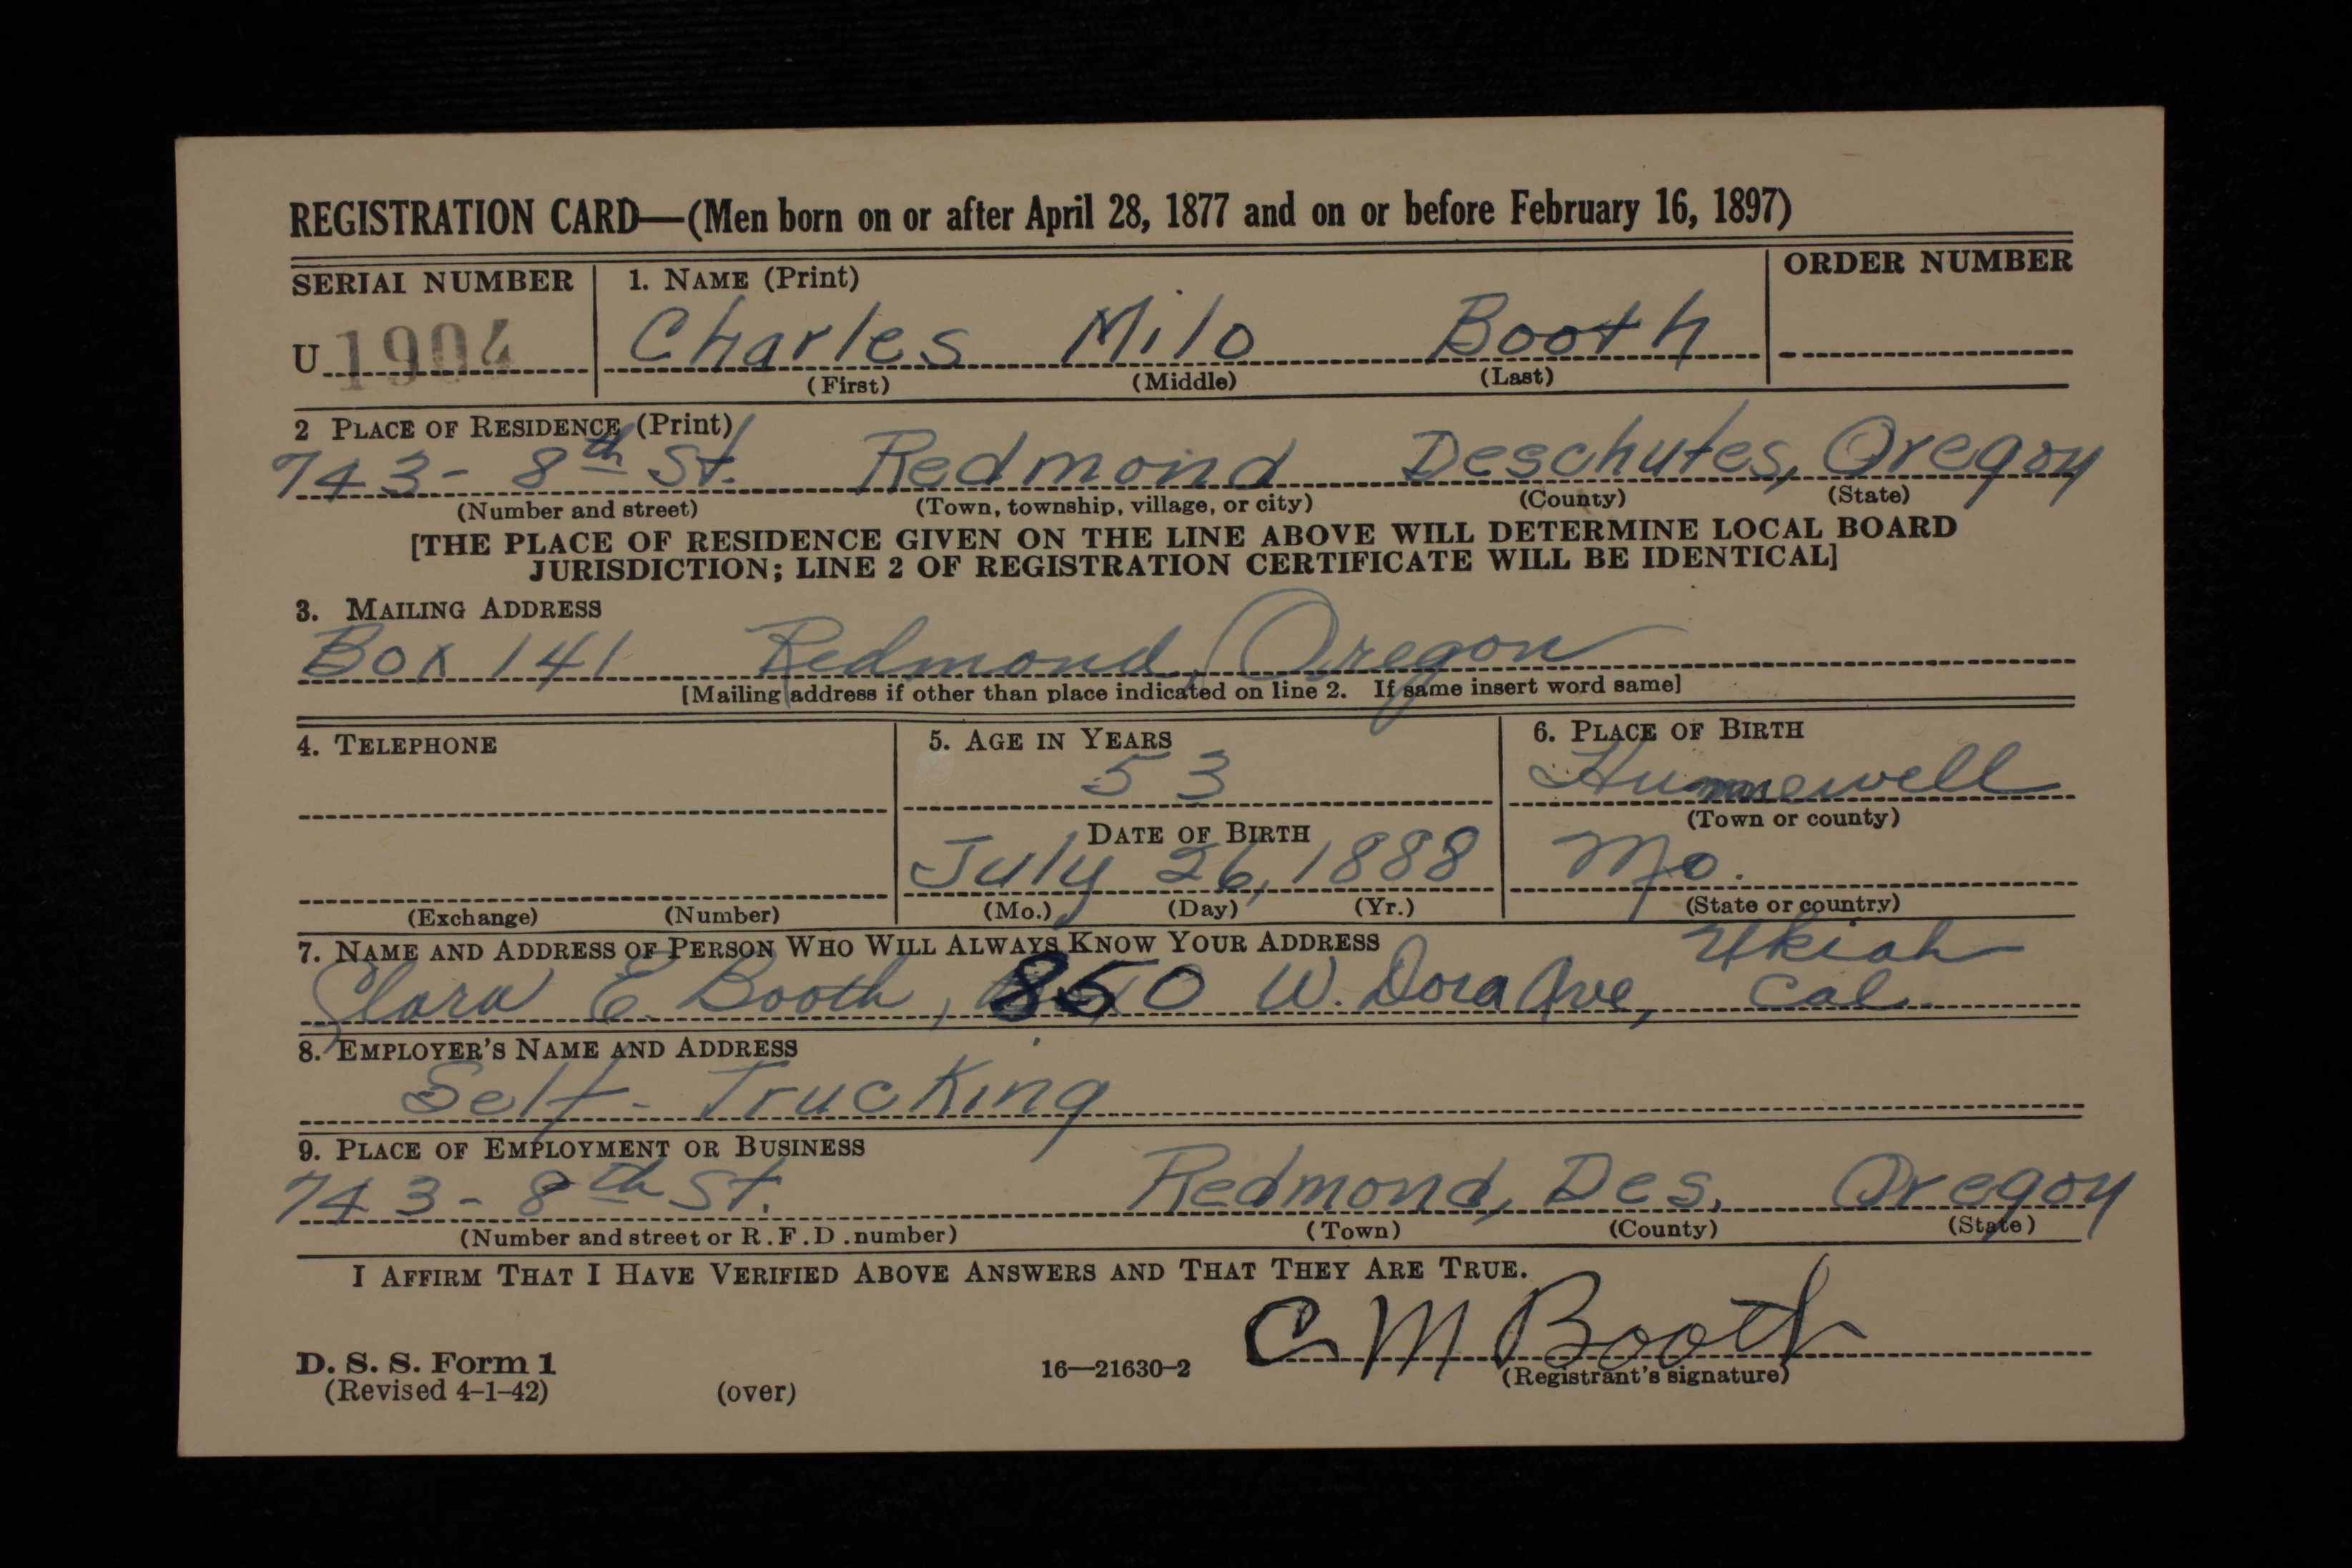 REGISTRATION CARD—(Men born on or after April 28, 1877 and on or before February 16, 1897)
SERIAL NUMBER 1. NAME (Print) ORDER NUMBER
U 1904 Charles Milo Booth
(First) (Middle) (Last)
2 PLACE OF RESIDENCE (Print)
743- 8th St. Redmond Deschutes, Oregon
(Number and street) (Town, township, village, or city) (County) (State)
[THE PLACE OF RESIDENCE GIVEN ON THE LINE ABOVE WILL DETERMINE LOCAL BOARD
JURISDICTION; LINE 2 OF REGISTRATION CERTIFICATE WILL BE IDENTICAL]
3. MAILING ADDRESS
Box 141 Redmond, Oregon
[Mailing address if other than place indicated on line 2. If same insert word same]
4. TELEPHONE 5. AGE IN YEARS 6. PLACE OF BIRTH
53 Hunnewell
(Town or county)
DATE OF BIRTH
July 26, 1888 Mo.
(Exchange) (Number) (Mo.) (Day) (Yr.) (State or country)
7. NAME AND ADDRESS OF PERSON WHO WILL ALWAYS KNOW YOUR ADDRESS Ukiah
Clara E. Booth, 850 W. Dora Ave, Cal.
8. EMPLOYER'S NAME AND ADDRESS
Self - Trucking
9. PLACE OF EMPLOYMENT OR BUSINESS
743- 8th St. Redmond, Des. Oregon
(Number and street or R.F.D. number) (Town) (County) (State)
I AFFIRM THAT I HAVE VERIFIED ABOVE ANSWERS AND THAT THEY ARE TRUE.
C M Booth
D. S. S. Form 1 16—21630-2 (Registrant's signature)
(Revised 4-1-42) (over)